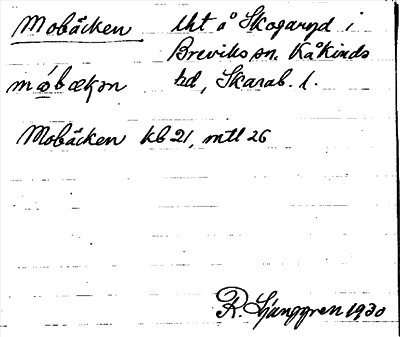 Mobäcken lht å Skogaryd i
Breviks sn. Kåkinds
móbækən hd, Skarab. l.
Mobäcken kb 21, mtl 26
R. Ljunggren 1930